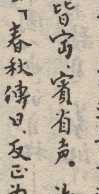 皆㝉、賓省声。
「春秋傳曰、反正为